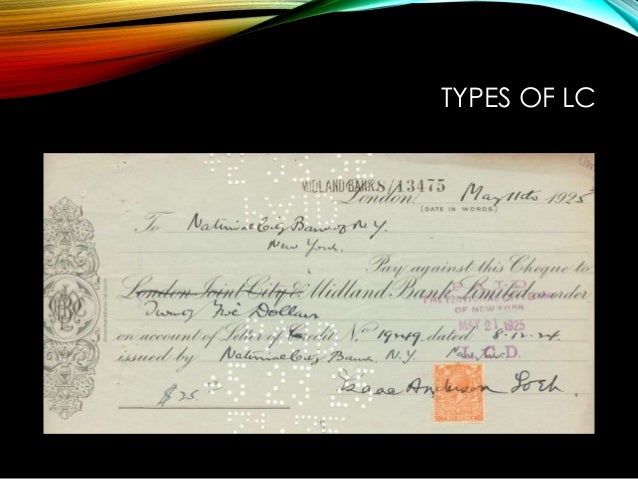 TYPES OF LC
MIDLAND BANK S/13475
London May 11th 1925
(DATE IN WORDS)
To National City Bank of N.Y.
New York.
Pay against this Cheque to
London Joint City & Midland Bank Limited or order
OF NEW YORK
Twenty Five Dollars
MAY 21 1925
on account of Letter of Credit No 19249 dated 8.12.24
issued by National City Bank, N.Y.
$25
Isaac Anderson Loeb.